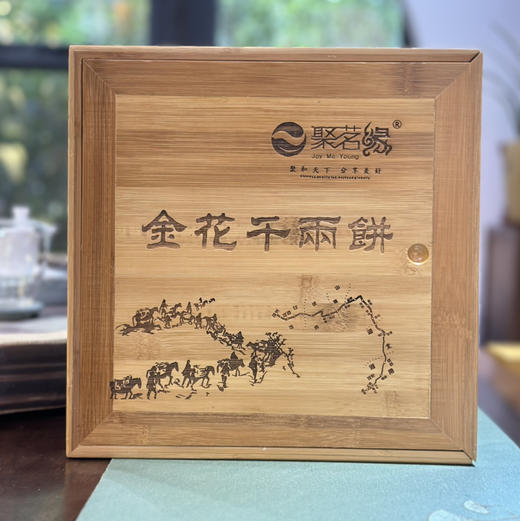 聚茗缘®
Joy Me Young
聚和天下 分享美好
金花千兩餅